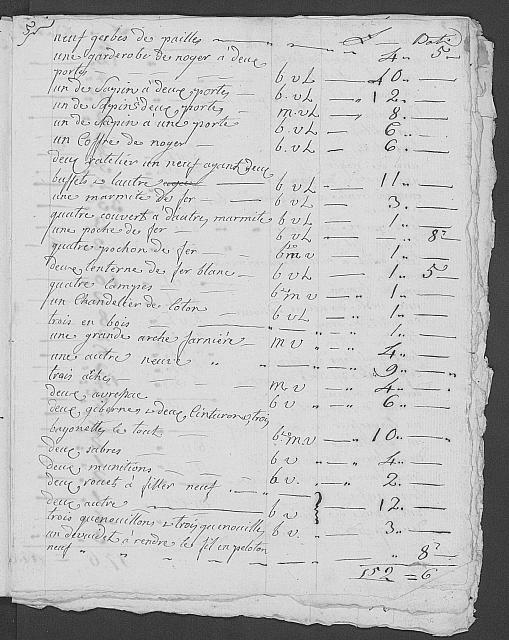 neuf gerbes de pailles — 5
une garderobe de noyer a deux 4
portes b v L — 40
un de Sapin a deux portes — b v L — 12
un de Sapins deux portes m. v L — 8
un de Sapin a une porte b. v L — 6
un Coffre de noyer b. v L — 6
deux ratelier un neuf ayant deux
buffets et lautre b v L — 11
une marmite de fer b v L — 3
quatre couvert a dautres marmite b v L — 1
une poche de fer — b v L 8
quatre pochon de fer m v — 1
deux lenterne de fer blanc b v L — 1 5
quatre lampes m v — 1
un Chandelier de loton b v L — 1
trois en bois — 1
une grande arche farniére m v — 4
une autre neuve 9
trois aches m v — 4
deux b v 6
deux gibernes et deux Cinturons, trois
bayonettes le tout m. v — 10
deux sabres b v 4
deux munitions b v. 2
deux rouets a filler neuf
deux autre b v 12
trois quenouillons et trois quenouilles b v. 3
un devuidet a rendre le fil en peloton
neuf 8
152 = 6